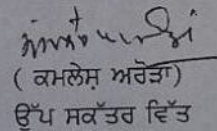 ( ਕਮਲੇਸ਼ ਅਰੋੜਾ)
ਉੱਪ ਸਕੱਤਰ ਵਿੱਤ